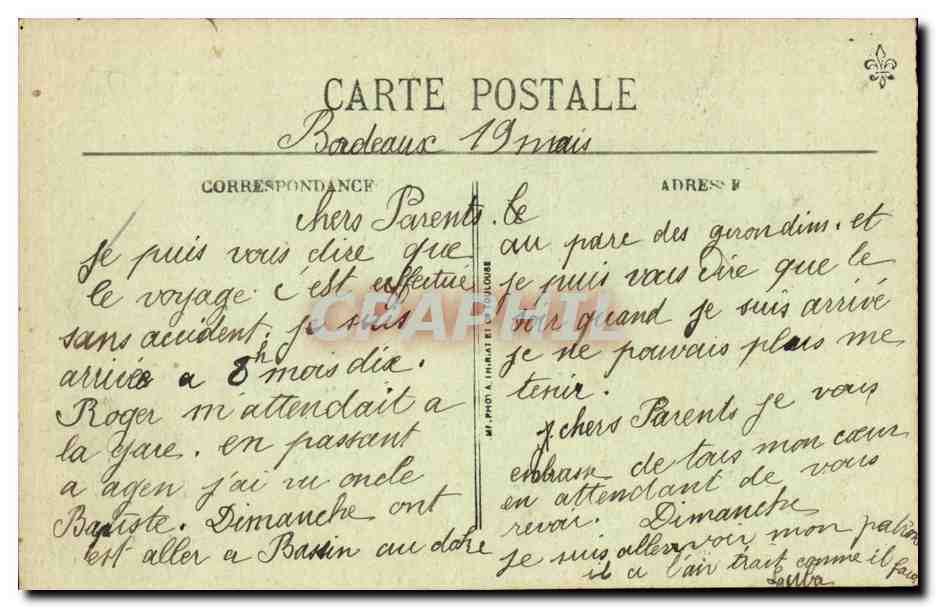 CARTE POSTALE
Bordeaux 19 mais
CORRESPONDANCE
chers Parents. Le
Je puis vous dire que
le voyage c'est effectué
sans accident. je suis
arrivée a 8h mois dix.
Roger m'attendait a
la gare. en passant
a agen j'ai vu oncle
Baptiste. Dimanche ont
est aller a Bassin au
MF. PHOT A. TOULOUSE
ADRESSE
au parc des girondins. et
je puis vous dire que le
soir quand je suis arrivé
je ne pouvais plus me
tenir.
chers Parents je vous
de tous mon cœur
en attendant de vous
revoir. Dimanche
je suis aller voir mon patron
il a l'air trait comme il faut
CPAPHIL